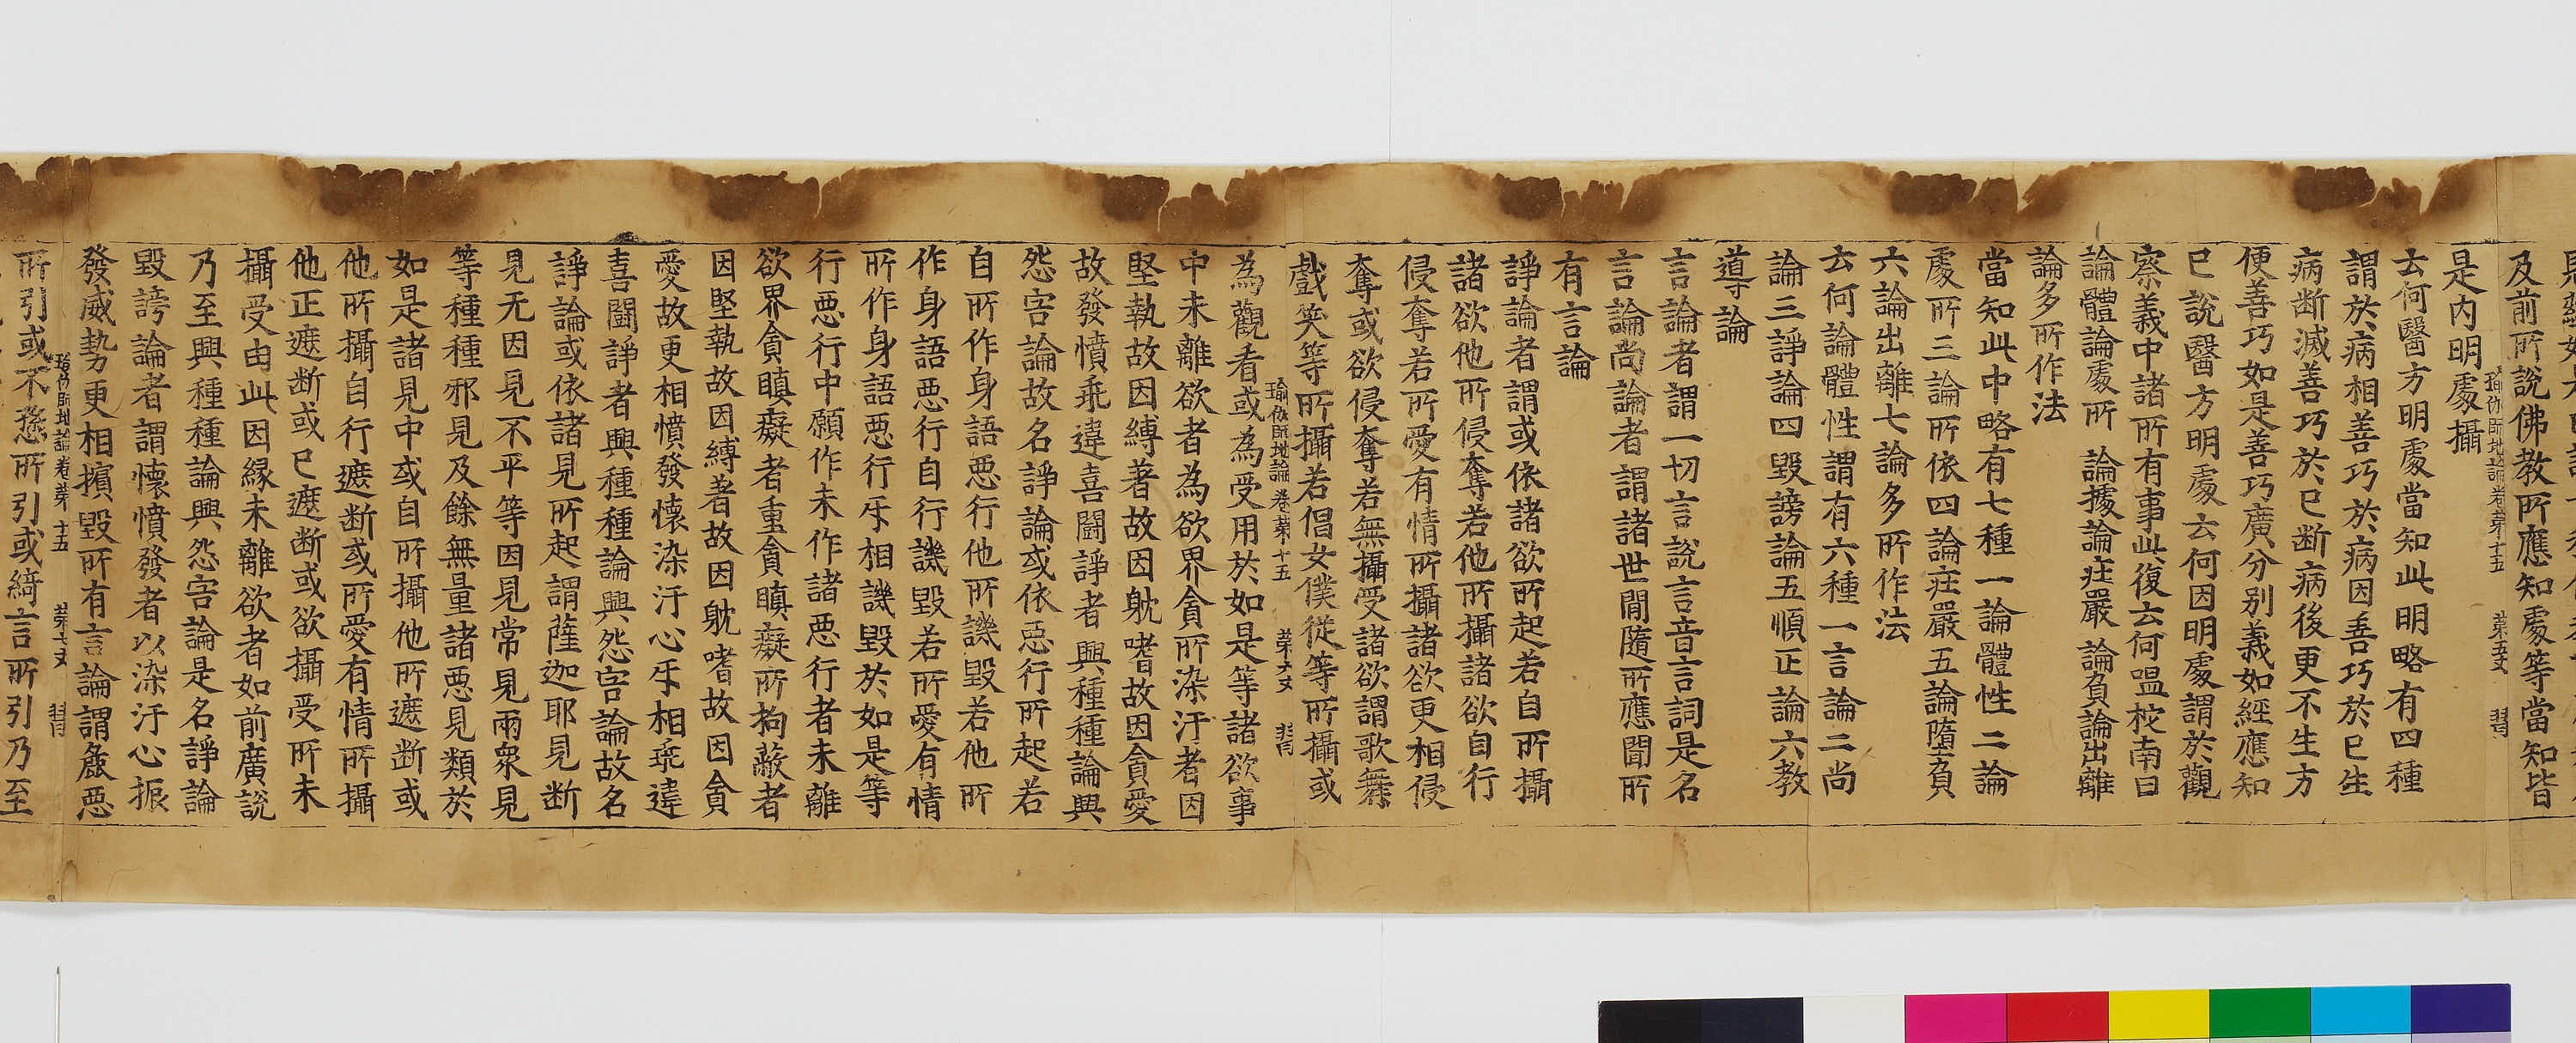 及前所說佛教所應知處等當知皆
瑜伽師地論卷苐十五 苐五丈
是內明處攝
云何醫方明處當知此明略有四種
謂於病相善巧於病因善巧於已生
病断滅善巧於已断病後更不生方
便善巧如是善巧廣分別義如經應知
已說醫方明處云何因明處謂於觀
察義中諸所有事此復云何嗢柁南曰
論體論處所 論據論莊嚴 論負論出離
論多所作法
當知此中略有七種一論體性二論
處所三論所依四論莊嚴五論墮負
六論出離七論多所作法
云何論體性謂有六種一言論二尚
論三諍論四毀謗論五順正論六教
導論
言論者謂一切言說言音言詞是名
言論尚論者謂諸世間隨所應聞所
有言論
諍論者謂或依諸欲所起若自所攝
諸欲他所侵奪若他所攝諸欲自行
侵奪若所愛有情所攝諸欲更相侵
奪或欲侵奪若無攝受諸欲謂歌舞
戲笑等所攝若倡女僕從等所攝或
瑜伽師地論卷苐十五 苐六丈
為觀看或為受用於如是等諸欲事
中未離欲者為欲界貪所染汙者因
堅執故因縛著故因躭嗜故因貪愛
故發憤乖違喜鬪諍者興種種論興
怨害論故名諍論或依惡行所起若
自所作身語惡行他所譏毀若他所
作身語惡行自行譏毀若所愛有情
所作身語惡行互相譏毀於如是等
行惡行中願作未作諸惡行者未離
欲界貪瞋癡者重貪瞋癡所拘蔽者
因堅執故因縛著故因躭嗜故因貪
愛故更相憤發懷染汙心互相乖違
喜鬪諍者興種種論興怨害論故名
諍論或依諸見所起謂薩迦耶見断
見无因見不平等因見常見雨衆見
等種種邪見及餘無量諸惡見類於
如是諸見中或自所攝他所遮断或
他所攝自行遮断或所愛有情所攝
他正遮断或已遮断或欲攝受所未
攝受由此因緣未離欲者如前廣說
乃至興種種論興怨害論是名諍論
毀謗論者謂懷憤發者以染汙心振
發威勢更相擯毀所有言論謂麁惡
瑜伽師地論卷苐十五 苐七丈
所引或不遜所引或綺言所引乃至